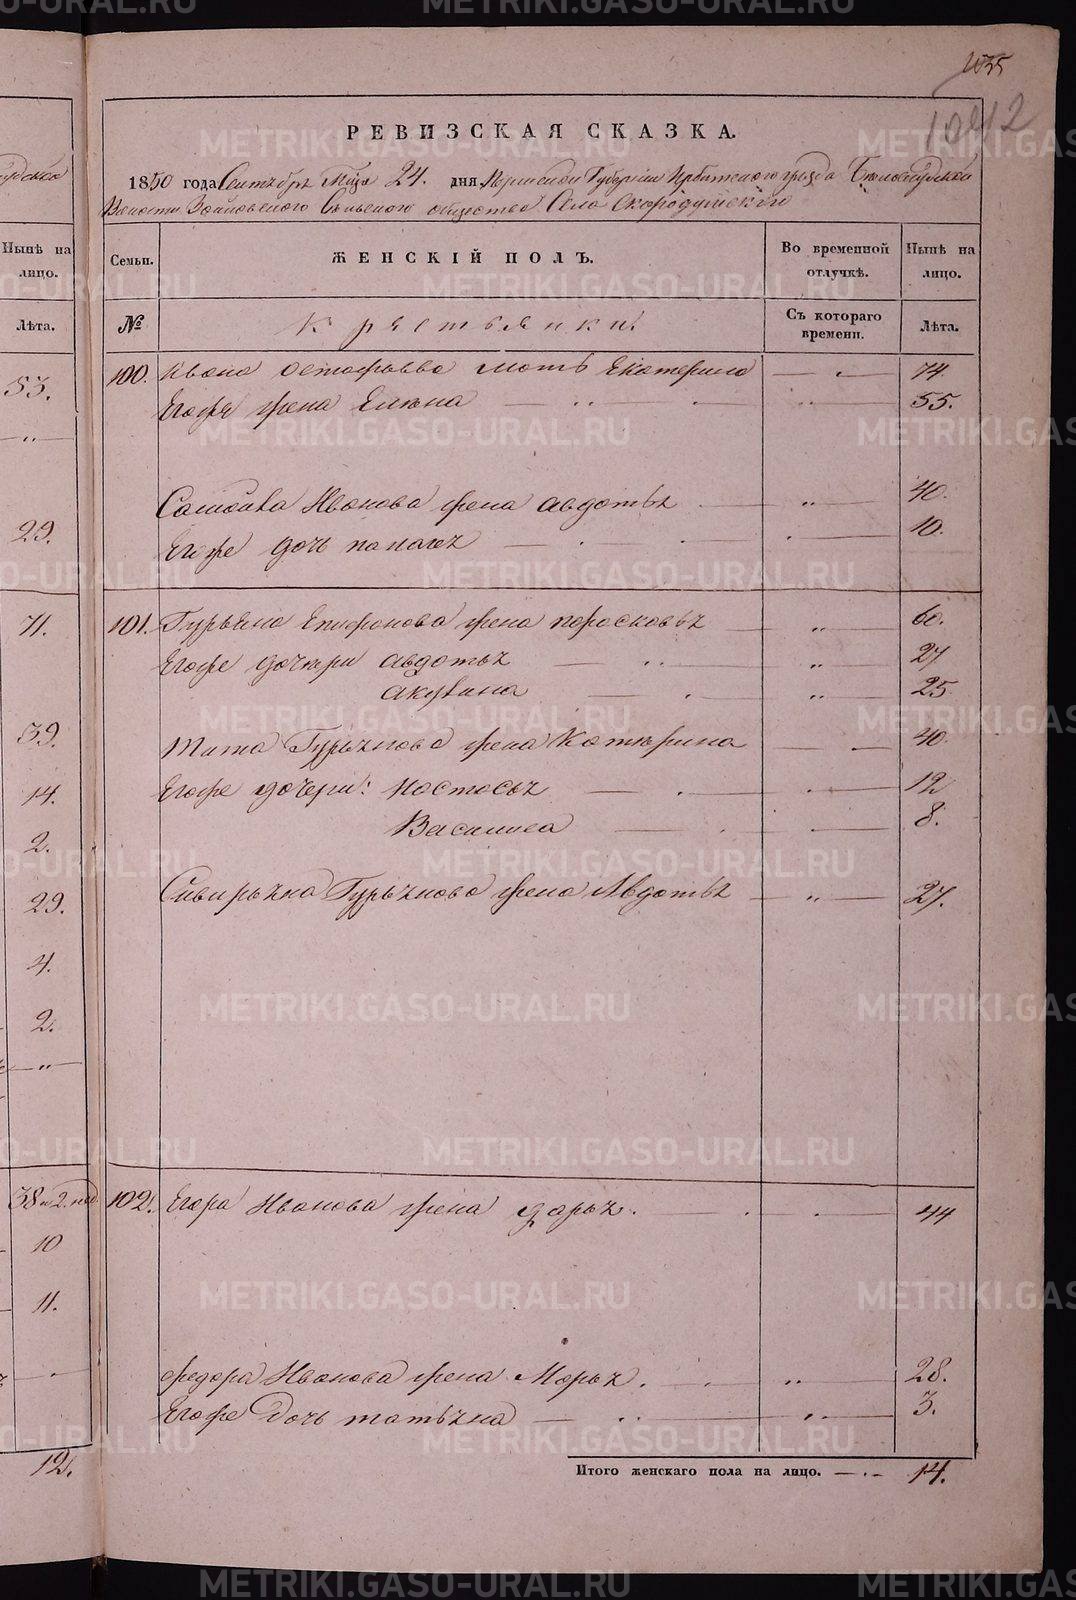 1035
10412
РЕВИЗСКАЯ СКАЗКА.
1850 года Сентября Мца 24. дня Пермской Губернии Ирбитского уезда Белослудской
Волости Зайковского Сельского общества Села Скородумского
Ныне на лицо.
Лѣта.
53.
"
29.
71.
39.
14.
2.
29.
4.
2.
"
38 и 2. нед
10
11.
12.
Семьи. ЖЕНСКІЙ ПОЛЪ. Во временной отлучкѣ. Нынѣ на лицо.
№ Крестьянки Съ котораго времени. Лѣта.
100. Ивана Остафьева мать Екатерина — " — 74
Егоже жена Елена — " — 55.
Самойла Иванова жена авдотья — " — 40.
Егоже дочь палагея — " — 10.
101. Гурьяна Епифанова жена парасковья — " — 60.
Егоже дочери авдотья — " — 27
акулина — " — 25
Тита Гурьянова жена Катерина — 40.
Егоже дочери: Настасья — 12
Василиса — 8.
Сивирьяна Гурьянова жена Авдотья — " — 27.
102. Егора Иванова жена дарья. — 44
Федора Иванова жена Марья. — " — 28.
Егоже Дочь татьяна — " — 3.
Итого женскаго пола на лицо. — " — 14.
METRIKI.GASO-URAL.RU